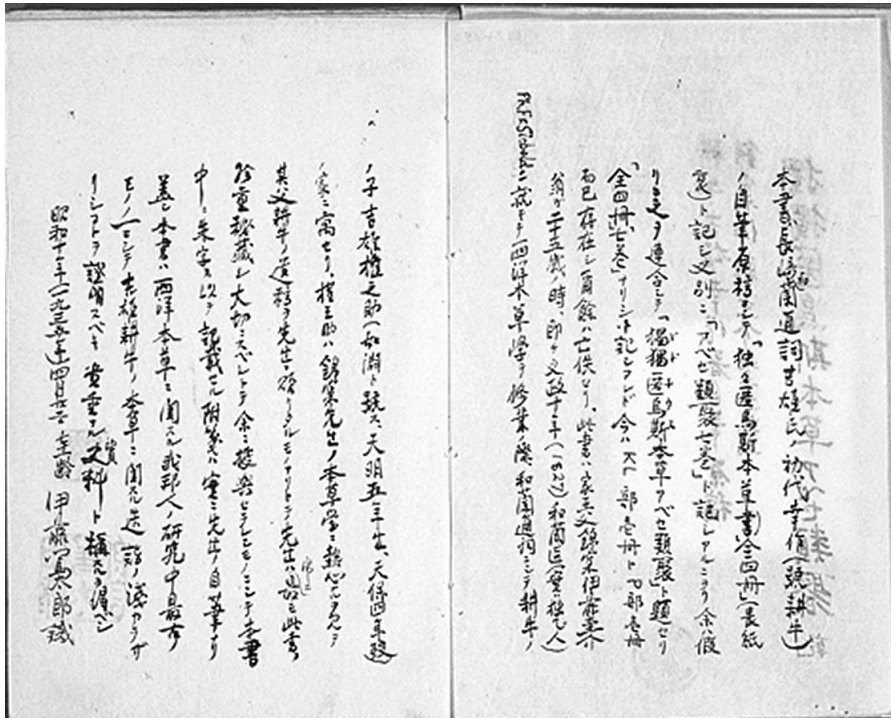 本書ハ長崎和蘭通詞吉雄氏ノ初代幸左(號耕牛)
ノ自筆原稿ニシテ「独々匿烏斯本草書全四冊」(表紙
裏)ト記シ又別ニ「アベセ類聚七巻」ト記シアルニヨリ余ハ假
リニ之ヲ連合シテ「獨獨匿烏斯本草アベセ類聚」ト題セリ
「全四冊、七巻」ナリシ事記シアレド今ハ 部壱冊ト 部壱冊
而已存在シ自餘ハ亡佚セリ、此書ハ家大父錦窠伊藤圭介
翁ガ二十五歳ノ時、即チ文政十年(一八二七)和蘭医
ニ就キテ西洋本草学ヲ修業ノ際和蘭通詞ニシテ耕牛ノ
ノ子吉雄権之助(如淵ト號ス、天明五年生、天保四年歿)
ノ家ニ寓セリ、権之助ハ錦窠先生ノ本草学ニ熱心ナルヲ見テ
其父耕牛ノ遺稿ヲ先生ニ贈リタルモノナリトテ先生ハ 此書ヲ
珍重秘蔵シ大切ニスベシトテ余ニ授与セラレシモノニシテ本書
中ニ朱字ヲ以テ記載セル附箋ハ実ニ先生ノ自筆ナリ
蓋シ本書ハ西洋本草ニ関スル我邦人ノ研究中最古ノ
モノノ一ニシテ吉雄耕牛ノ本草ニ関スル造詣ノ浅カラザ
リシコトヲ證明スベキ貴重ナル史料ト稱スルヲ得ベシ
昭和十年(一九三五年)四月 伊藤篤太郎識